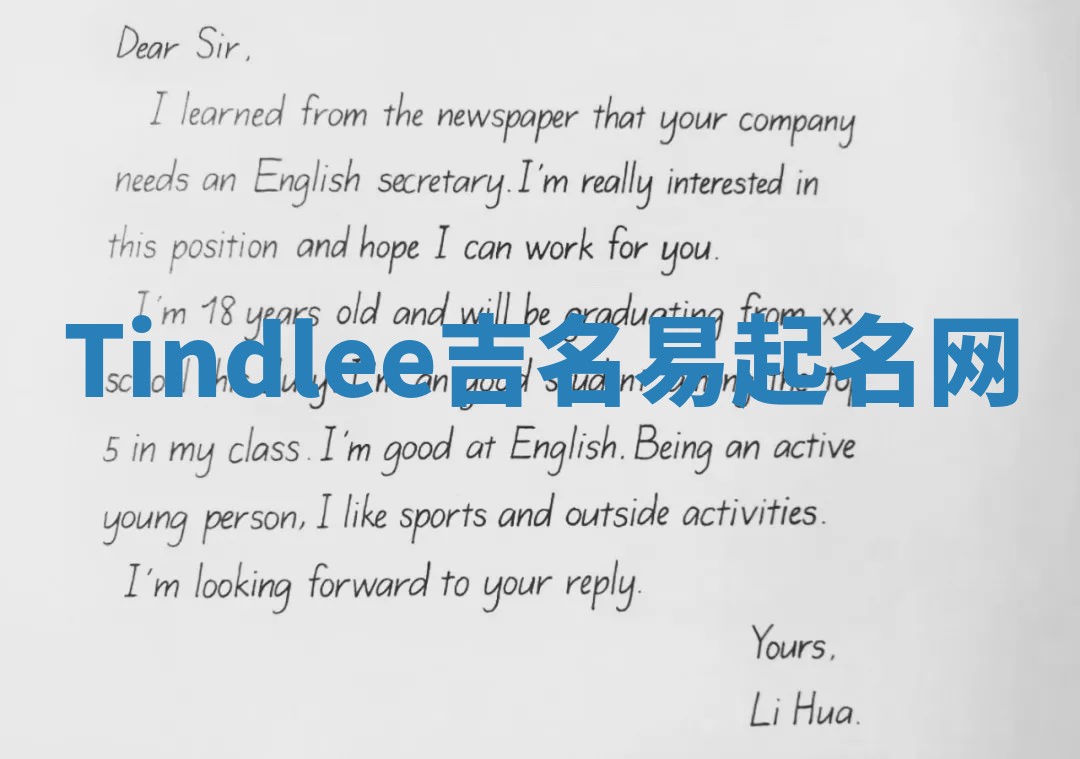 Dear Sir,
I learned from the newspaper that your company
needs an English secretary. I'm really interested in
this position and hope I can work for you.
I'm 18 years old and will be graduating from xx
Tindlee吉名易起名网
school this July. I'm an good student among the top
5 in my class. I'm good at English. Being an active
young person, I like sports and outside activities.
I'm looking forward to your reply.
Yours,
Li Hua.